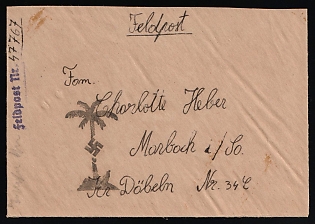 Feldpost
Feldpost Nr. 47767
Fam.
Charlotte Heber
Marbach i/Sa.
Kr Döbeln Nr. 34L